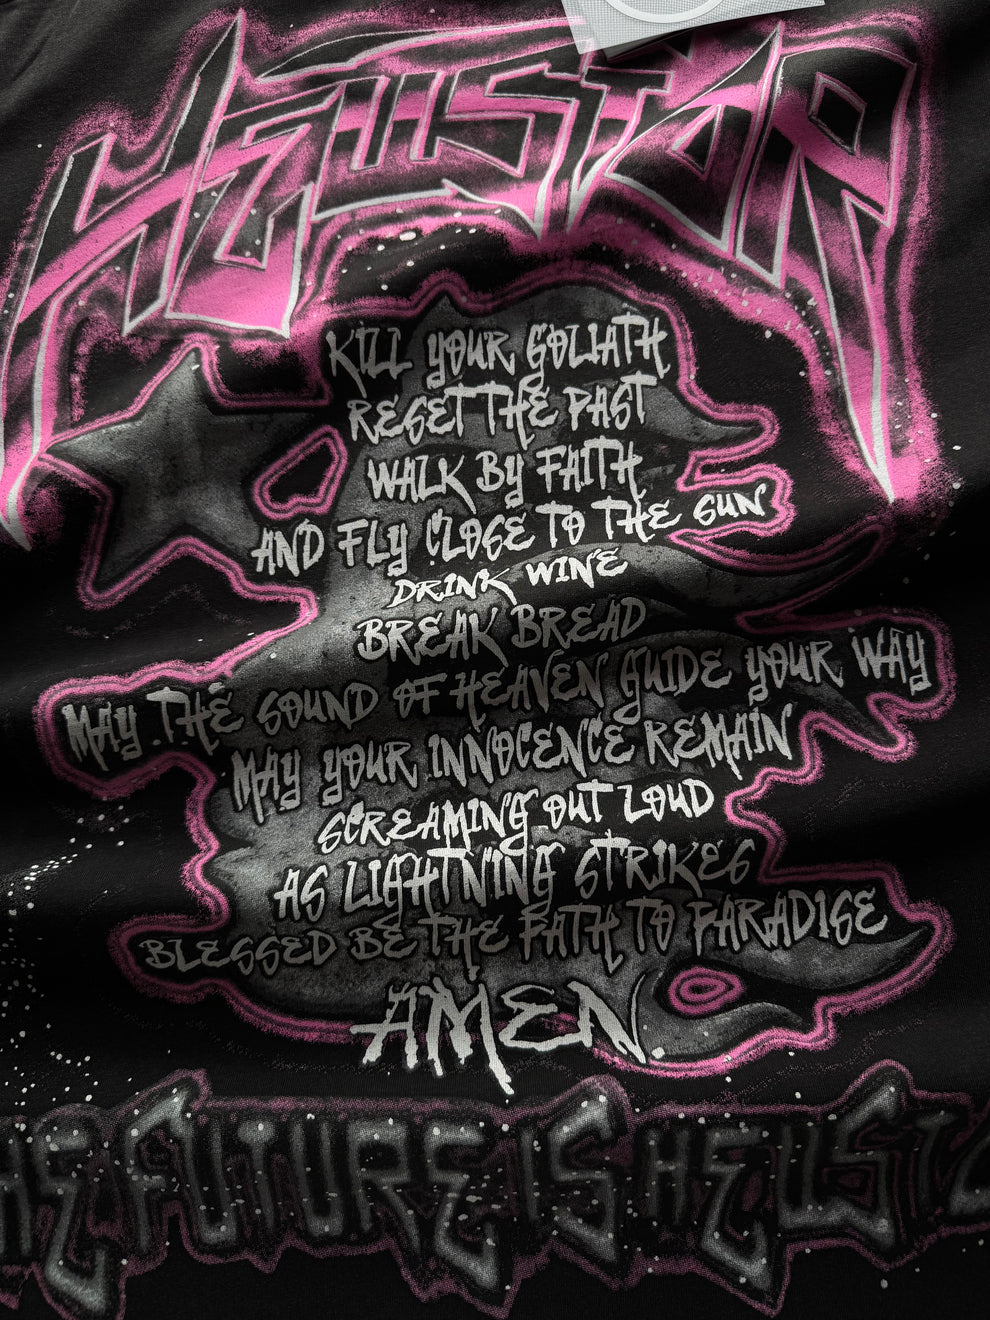 HEUSTAR
KILL YOUR GOLIATH
RESET THE PAST
WALK BY FAITH
AND FLY CLOSE TO THE SUN
DRINK WINE
BREAK BREAD
MAY THE SOUND OF HEAVEN GUIDE YOUR WAY
MAY YOUR INNOCENCE REMAIN
SCREAMING OUT LOUD
AS LIGHTNING STRIKES
BLESSED BE THE PATH TO PARADISE
AMEN
HE FUTURE IS HEUST